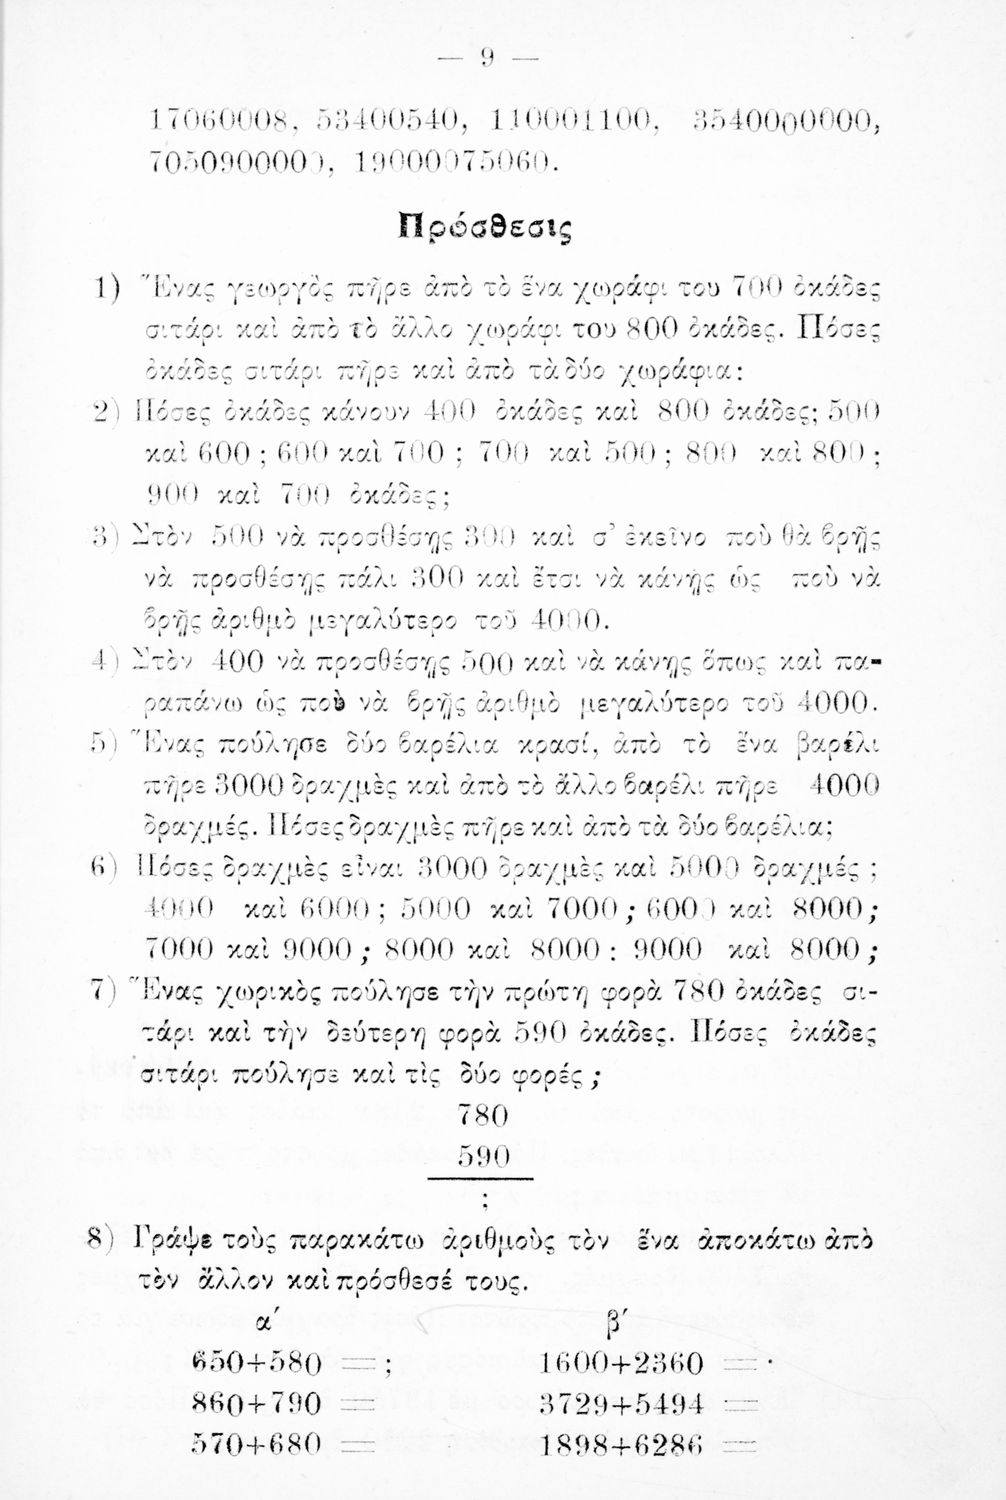 — 9 —
17060008, 53400540, 110001100, 3540000000,
7050900000, 19000075060.
Πρόσθεσις
1) Ἕνας γεωργὸς πῆρε ἀπὸ τὸ ἕνα χωράφι του 700 ὀκάδες
σιτάρι καὶ ἀπὸ τὸ ἄλλο χωράφι του 800 ὀκάδες. Πόσες
ὀκάδες σιτάρι πῆρε καὶ ἀπὸ τὰ δύο χωράφια:
2) Πόσες ὀκάδες κάνουν 400 ὀκάδες καὶ 800 ὀκάδες; 500
καὶ 600 ; 600 καὶ 700 ; 700 καὶ 500 ; 800 καὶ 800 ;
900 καὶ 700 ὀκάδες;
3) Στὸν 500 νὰ προσθέσῃς 300 καὶ σ' ἐκεῖνο ποὺ θὰ βρῇς
νὰ προσθέσῃς πάλι 300 καὶ ἔτσι νὰ κάνῃς ὡς ποὺ νὰ
βρῇς ἀριθμὸ μεγαλύτερο τοῦ 4000.
4) Στὸν 400 νὰ προσθέσῃς 500 καὶ νὰ κάνῃς ὅπως καὶ πα-
ραπάνω ὡς ποὺ νὰ βρῇς ἀριθμὸ μεγαλύτερο τοῦ 4000.
5) Ἕνας πούλησε δύο βαρέλια κρασί, ἀπὸ τὸ ἕνα βαρέλι
πῆρε 3000 δραχμὲς καὶ ἀπὸ τὸ ἄλλο βαρέλι πῆρε 4000
δραχμές. Πόσες δραχμὲς πῆρε καὶ ἀπὸ τὰ δύο βαρέλια;
6) Πόσες δραχμὲς εἶναι 3000 δραχμὲς καὶ 5000 δραχμές ;
4000 καὶ 6000 ; 5000 καὶ 7000 ; 6000 καὶ 8000 ;
7000 καὶ 9000 ; 8000 καὶ 8000 : 9000 καὶ 8000 ;
7) Ἕνας χωρικὸς πούλησε τὴν πρώτη φορὰ 780 ὀκάδες σι-
τάρι καὶ τὴν δεύτερη φορὰ 590 ὀκάδες. Πόσες ὀκάδες
σιτάρι πούλησε καὶ τὶς δύο φορές ;
780
590
;
8) Γράψε τοὺς παρακάτω ἀριθμοὺς τὸν ἕνα ἀποκάτω ἀπὸ
τὸν ἄλλον καὶ πρόσθεσέ τους.
α΄ β΄
650+580 = ; 1600+2360 = ·
860+790 = 3729+5494 =
570+680 = 1898+6286 =